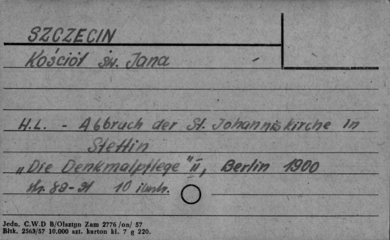 SZCZECIN
Kościół św. Jana
H.L. - Abbruch der St. Johanniskirche in
Stettin
„Die Denkmalpflege" II, Berlin 1900
Nr. 89-91 10 ilustr.
Jedn. C.W.D B/Olsztyn Zam 2776 /on/ 57
Blok. 2563/57 10.000 szt. karton kl. 7 g 220.